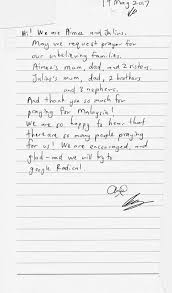 19 May 2017
Hi! We are Aimee and Julius.
May we request prayer for
our unbelieving families.
Aimee's mum, dad, and 2 sisters.
Julius's mum, dad, 2 brothers
and 3 nephews.
And thank you so much for
praying for Malaysia!
We are so happy to hear that
there are so many people praying
for us! We are encouraged, and
glad and we will try to
google Radical.